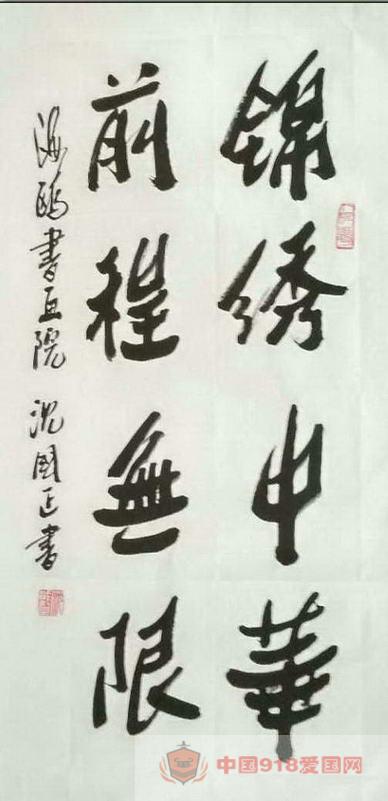 锦绣中華
前程無限
海鸥書画院 沈国正書
中国918爱国网